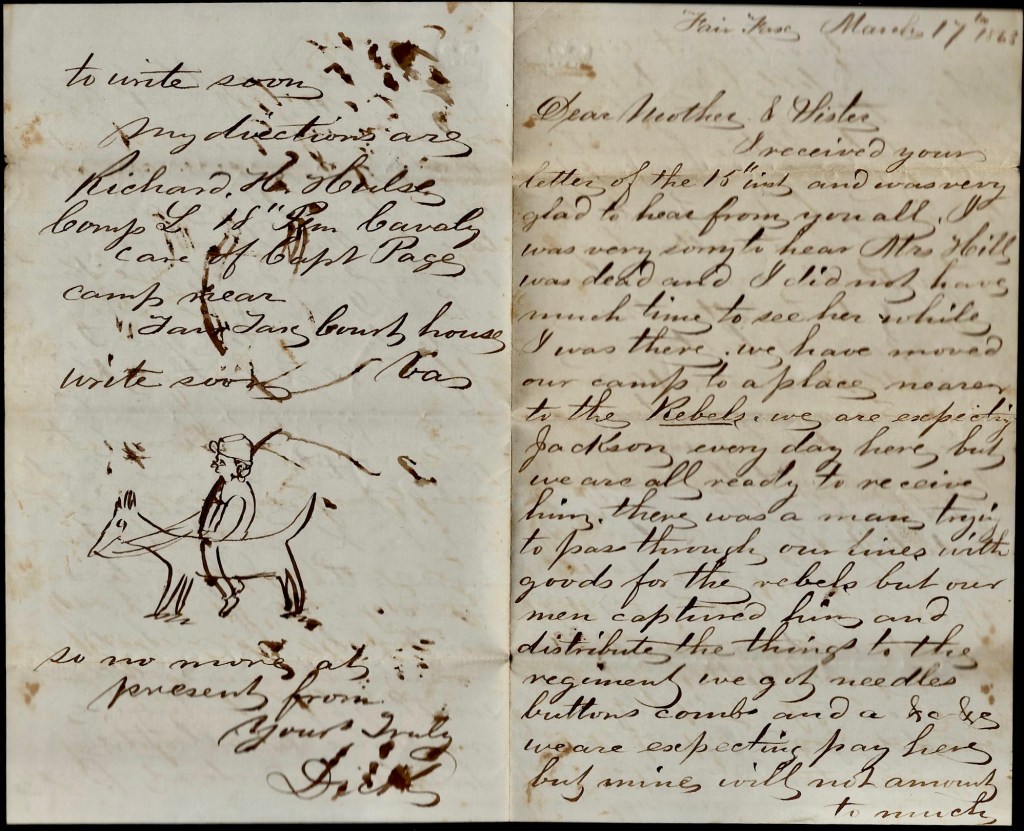 Fair Fax March 17th 1863
Dear Mother & Sister
I received your
letter of the 15" inst and was very
glad to hear from you all. I
was very sorry to hear Mrs Hill
was dead and I did not have
much time to see her while
I was there. we have moved
our camp to a place nearer
to the Rebels. we are expecting
Jackson every day here but
we are all ready to receive
him. there was a man trying
to pass through our lines with
goods for the rebels but our
men captured him and
distribute the things to the
regiment we got needles
buttons combs and a &c &c
we are expecting pay here
but mine will not amount
to much
to write soon
My directions are
Richard. H. Hulse
Comp L 18" Pen Cavalry
care of Capt Page
camp near
Fair Fax Court house
write soon Va
so no more at
present from
Yours Truly
Dick